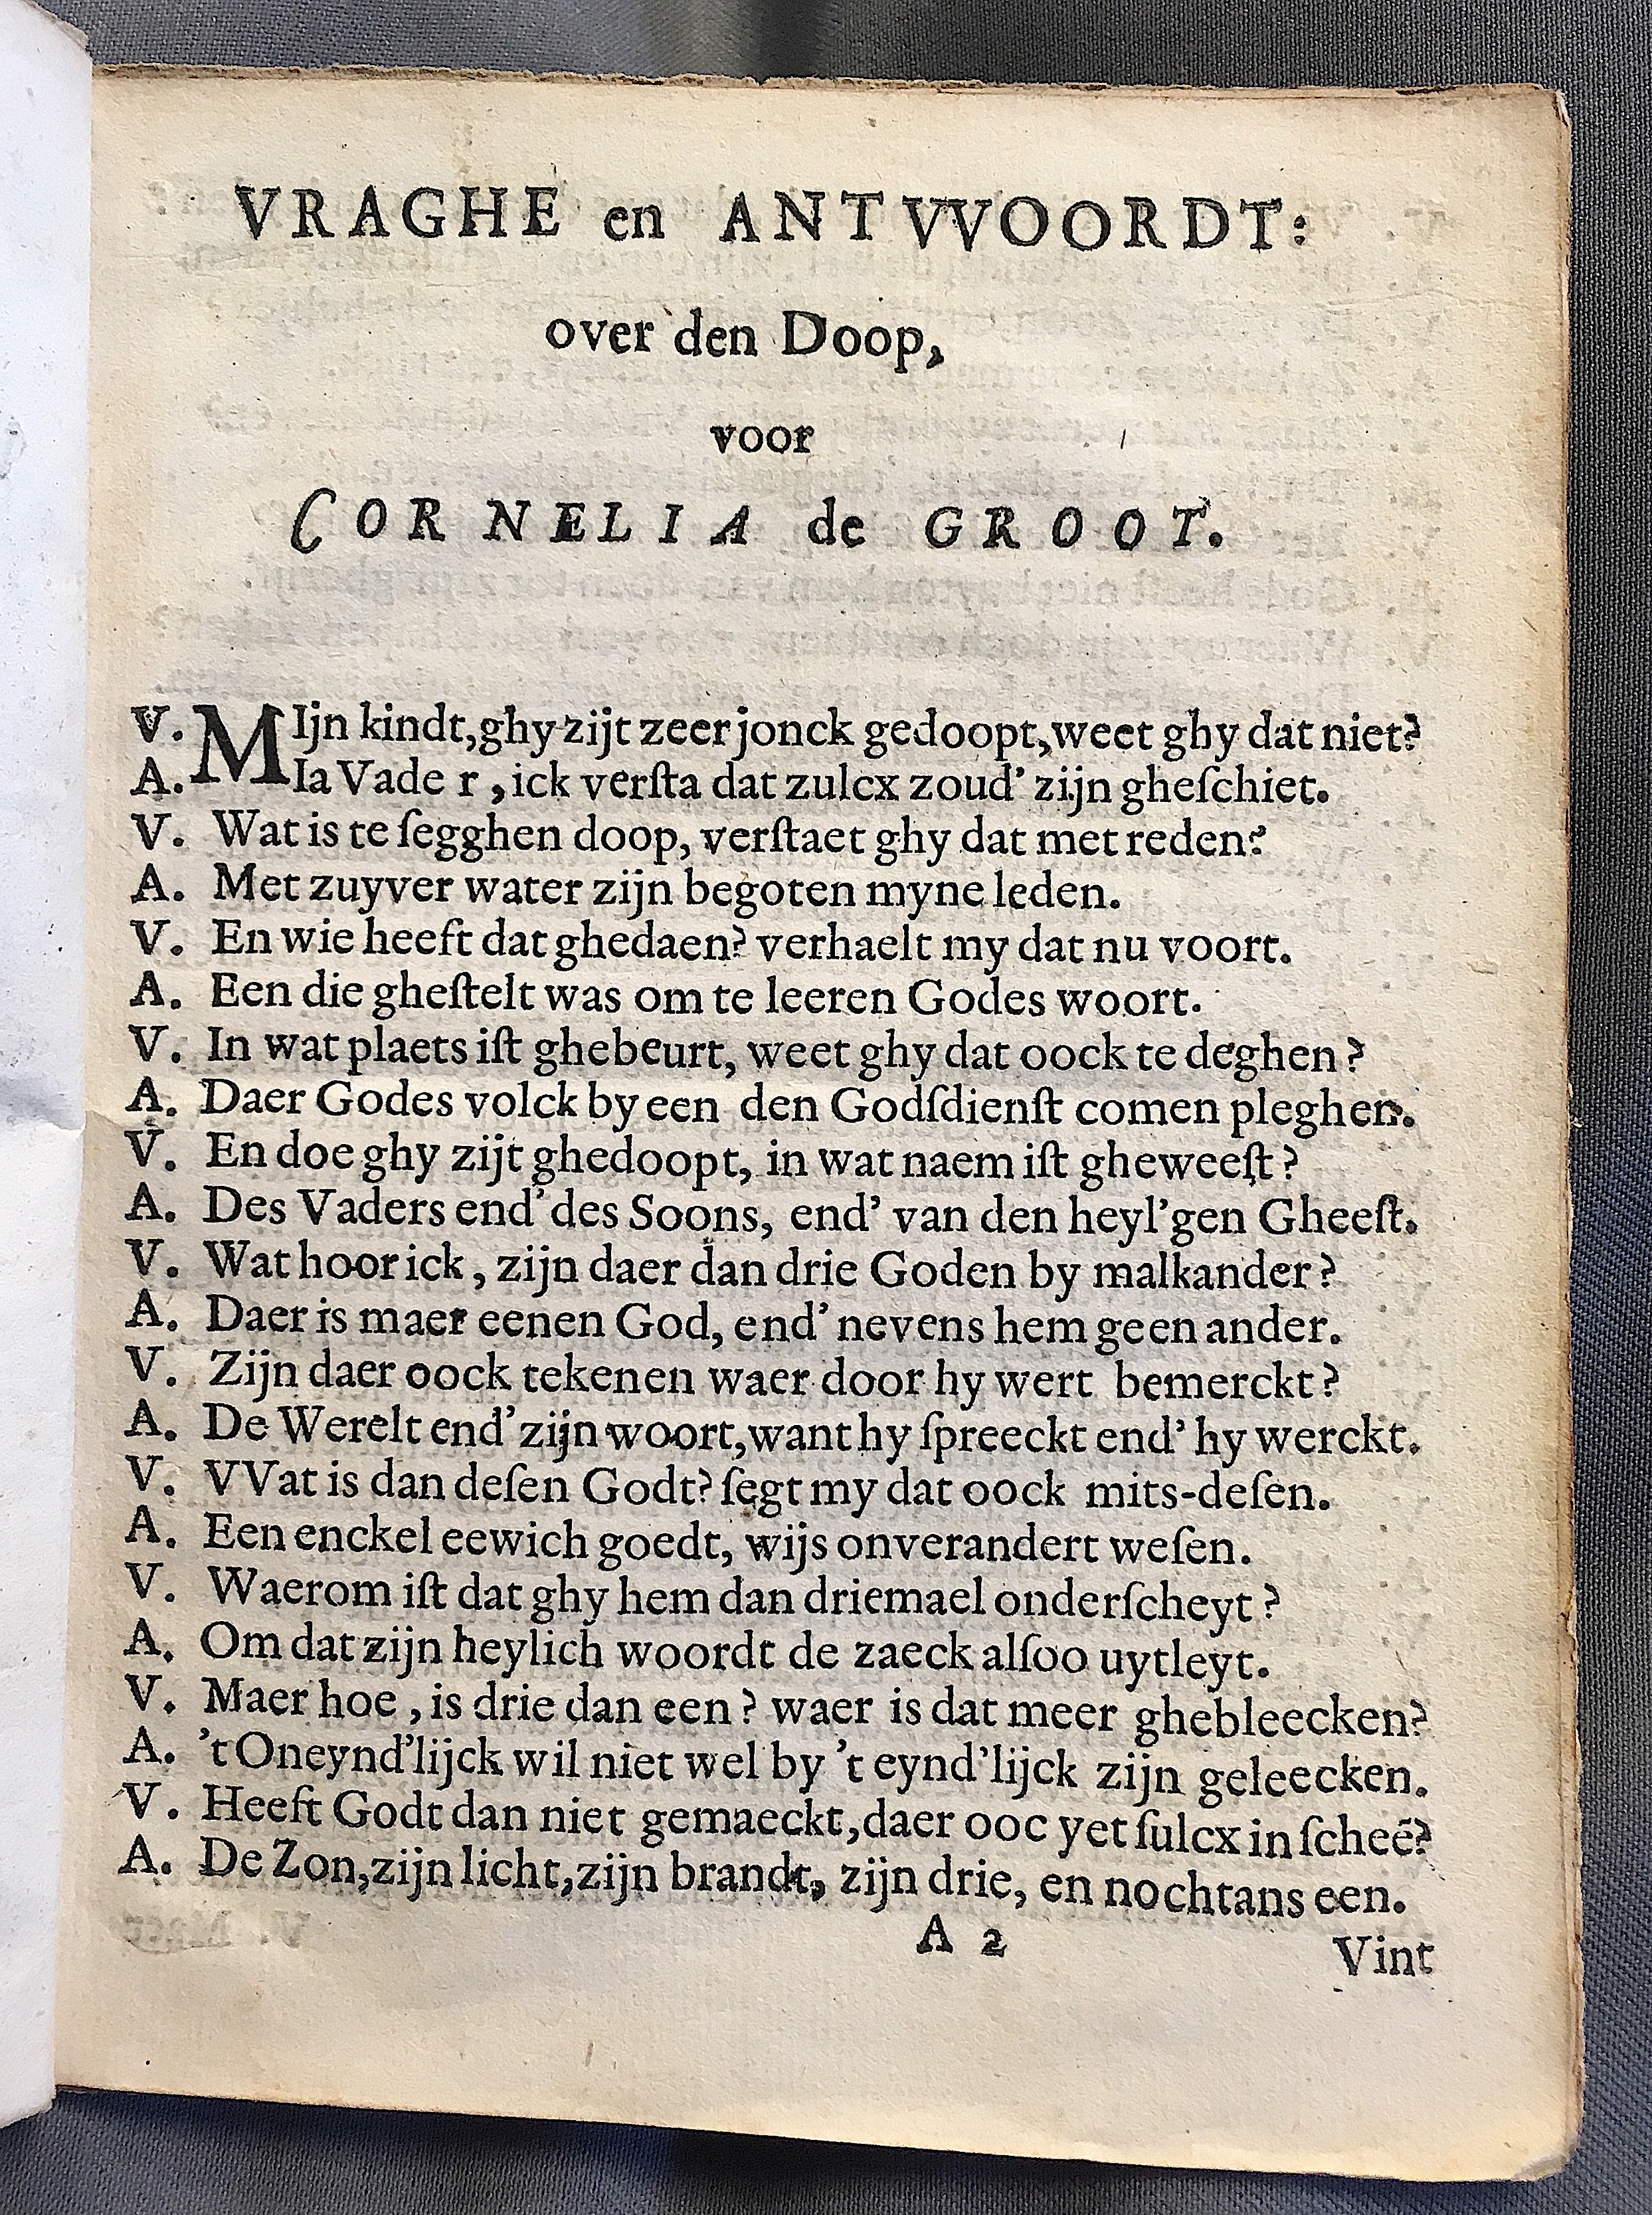 VRAGHE en ANTVVOORDT:
over den Doop,
voor
CORNELIA de GROOT.
V. MIjn kindt,ghy zijt zeer jonck gedoopt,weet ghy dat niet?
A. Ia Vade r , ick verſta dat zulcx zoud' zijn gheſchiet.
V. Wat is te ſegghen doop, verſtaet ghy dat met reden?
A. Met zuyver water zijn begoten myne leden.
V. En wie heeft dat ghedaen? verhaelt my dat nu voort.
A. Een die gheſtelt was om te leeren Godes woort.
V. In wat plaets iſt ghebeurt, weet ghy dat oock te deghen?
A. Daer Godes volck by een den Godſdienſt comen pleghen.
V. En doe ghy zijt ghedoopt, in wat naem iſt gheweeſt?
A. Des Vaders end' des Soons, end' van den heyl'gen Gheeſt.
V. Wat hoor ick, zijn daer dan drie Goden by malkander?
A. Daer is maer eenen God, end' nevens hem geen ander.
V. Zijn daer oock tekenen waer door hy wert bemerckt?
A. De Werelt end' zijn woort,want hy ſpreeckt end' hy werckt.
V. VVat is dan deſen Godt? ſegt my dat oock mits-deſen.
A. Een enckel eewich goedt, wijs onverandert weſen.
V. Waerom iſt dat ghy hem dan driemael onderſcheyt?
A. Om dat zijn heylich woordt de zaeck alſoo uytleyt.
V. Maer hoe, is drie dan een? waer is dat meer ghebleecken?
A. 't Oneynd'lijck wil niet wel by 't eynd'lijck zijn geleecken.
V. Heeft Godt dan niet gemaeckt,daer ooc yet ſulcx in ſcheē?
A. De Zon,zijn licht,zijn brandt, zijn drie, en nochtans een.
A 2
Vint